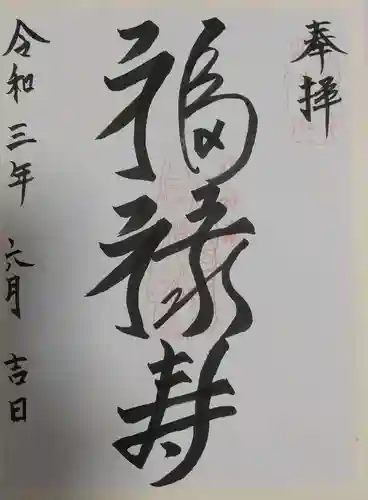 奉拝
福禄寿
令和三年 六月 吉日